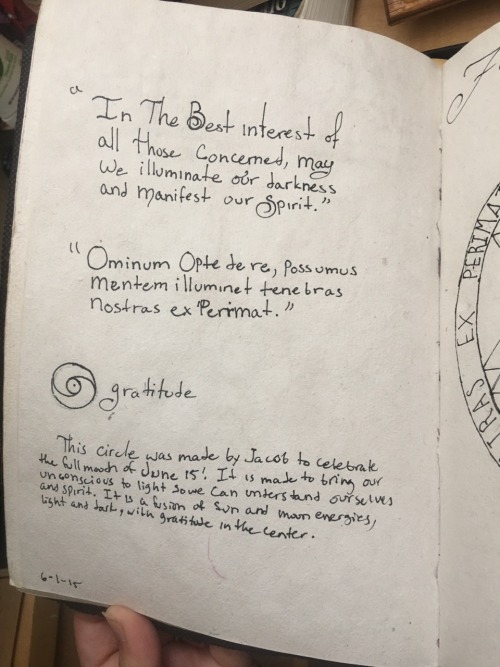 "In The Best interest of
all those Concerned, may
we illuminate our darkness
and manifest our Spirit."
"Ominum Opte de re, possumus
mentem illuminet tenebras
nostras ex Perimat."
gratitude
This circle was made by Jacob to celebrate
the full moon of June 15! It is made to bring our
unconscious to light so we can understand ourselves
and spirit. It is a fusion of sun and moon energies,
light and dark, with gratitude in the center.
6-1-15
TRAS EX PERIMAT